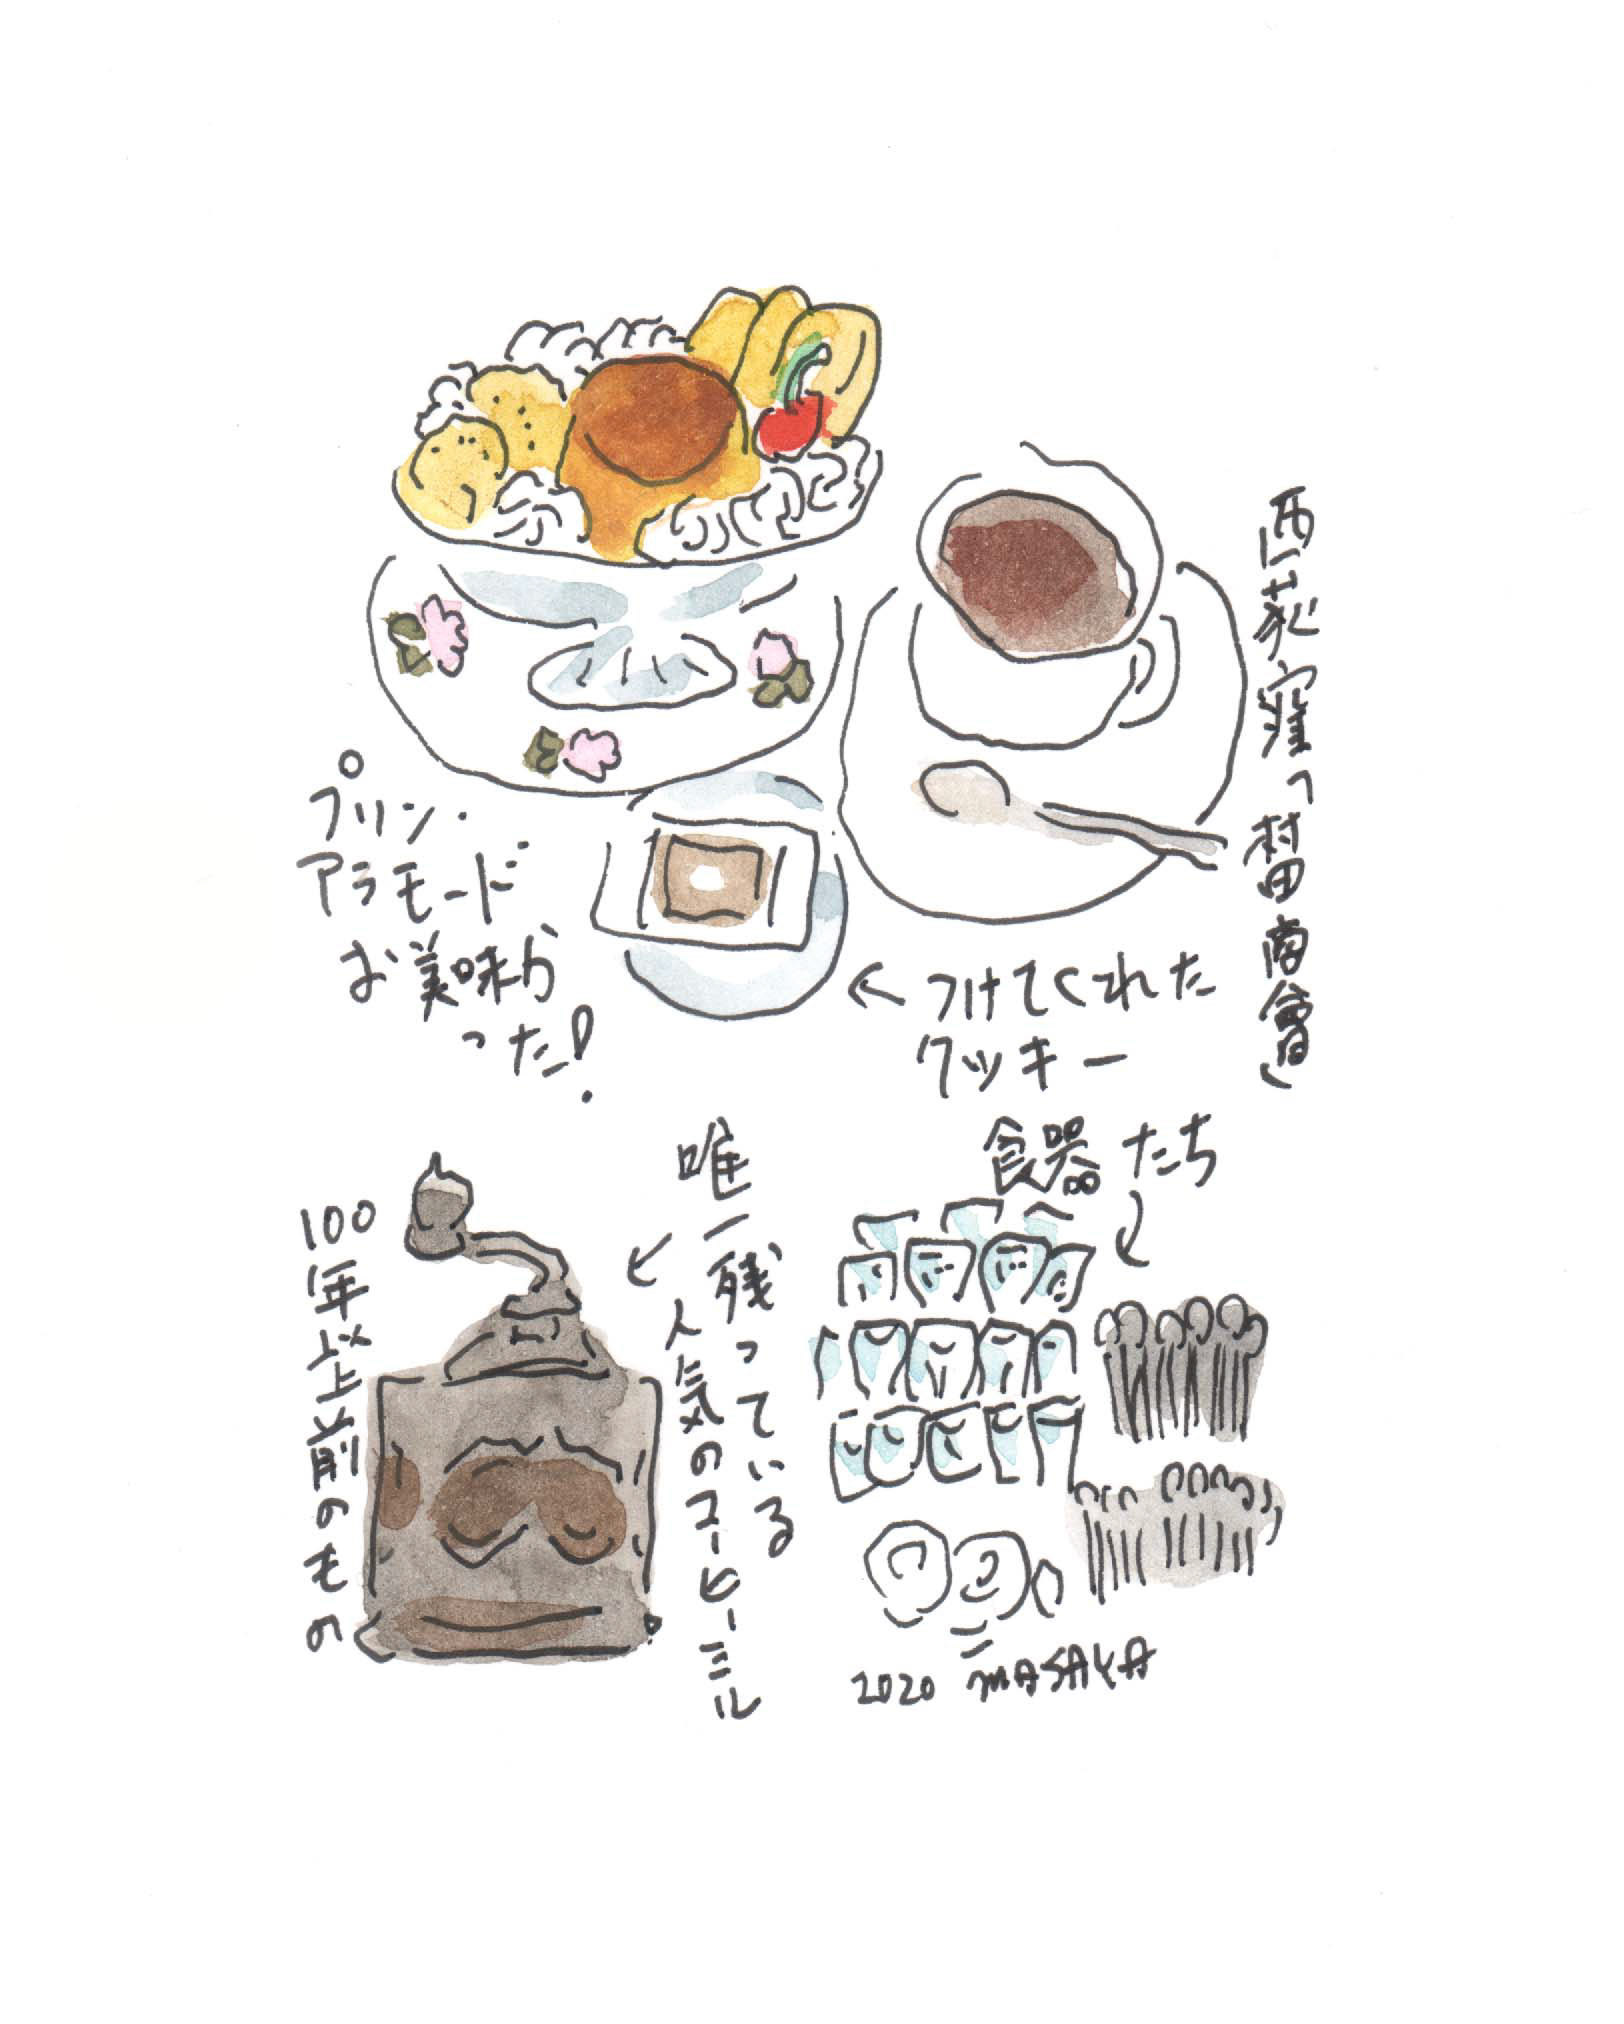 西荻窪「村田商會」
プリン・
アラモード
お美味か
った!
← つけてくれた
クッキー
食器たち
唯一残っている
人気のコーヒーミル
100年以上前のもの
2020 MASAYA